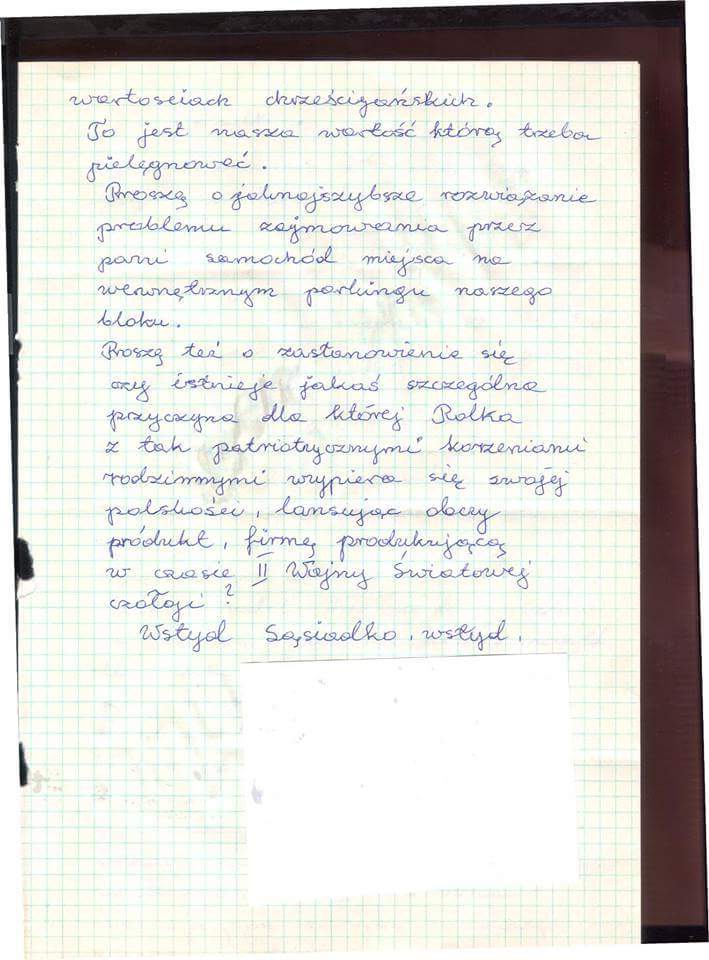 wartosciach chrześcijańskich.
To jest nasza wartość którą trzeba
pielęgnować.
Proszę o jaknajszybsze rozwiązanie
problemu zajmowania przez
pani samochód miejsca na
wewnętrznym parkingu naszego
bloku.
Proszę też o zastanowienie się
czy istnieje jakaś szczególna
przyczyna dla której Polka
z tak patriotycznymi korzeniami
rodzinnymi wypiera się swojej
polskości, lansując obcy
produkt, firmę produkującą
w czasie II Wojny Światowej
czołgi?
Wstyd Sąsiadko, wstyd.